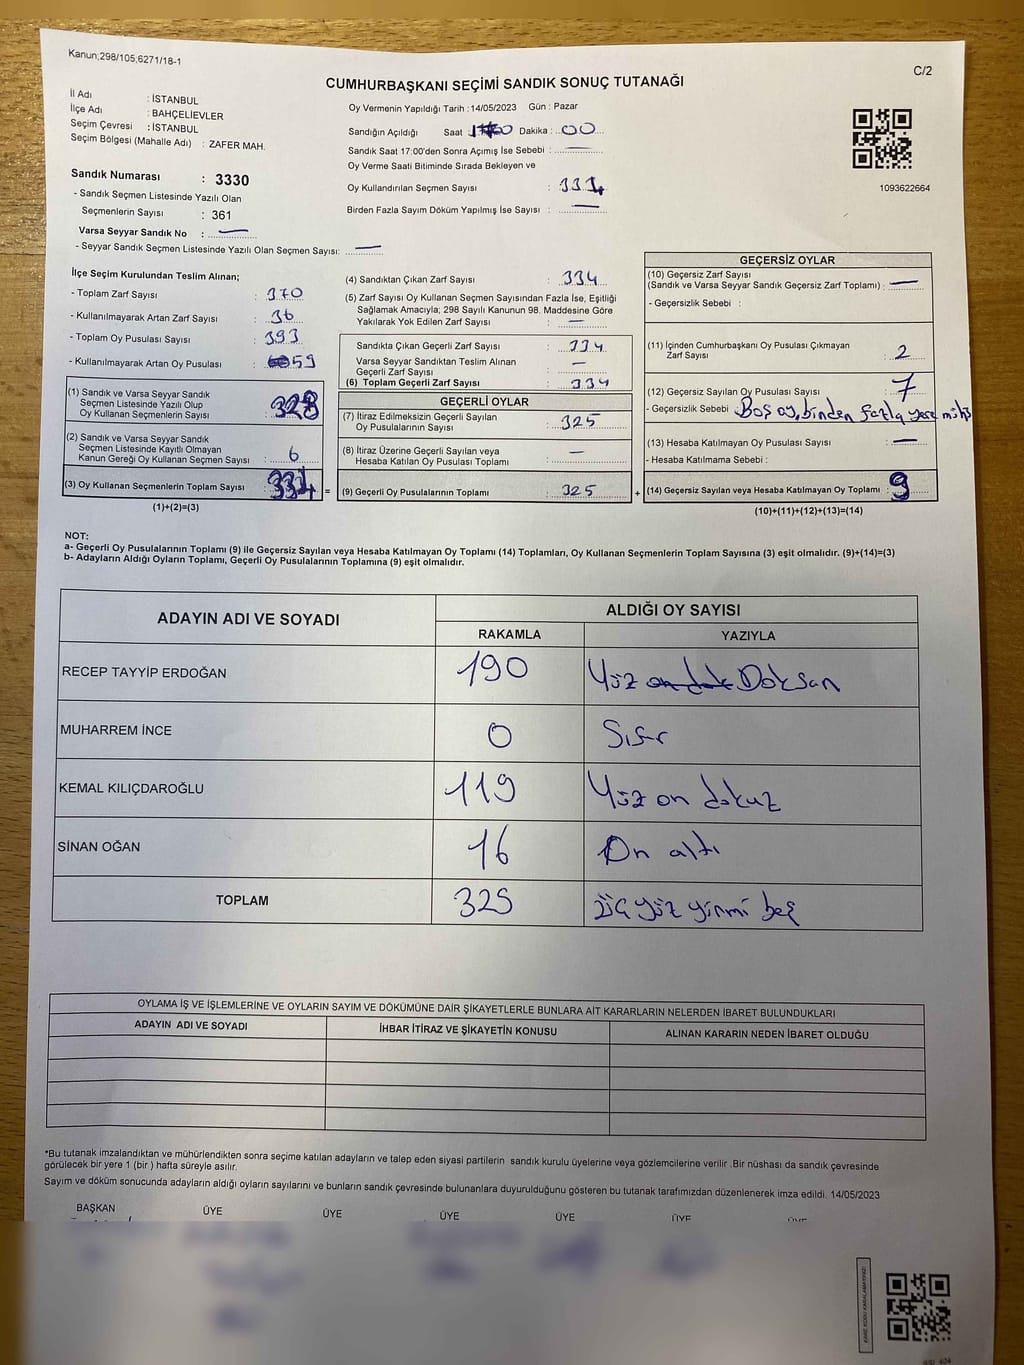 Kanun;298/105;6271/18-1
C/2
CUMHURBAŞKANI SEÇİMİ SANDIK SONUÇ TUTANAĞI
İl Adı : İSTANBUL
İlçe Adı : BAHÇELİEVLER
Seçim Çevresi : İSTANBUL
Seçim Bölgesi (Mahalle Adı) : ZAFER MAH.
Sandık Numarası : 3330
- Sandık Seçmen Listesinde Yazılı Olan
Seçmenlerin Sayısı : 361
Varsa Seyyar Sandık No : —
- Seyyar Sandık Seçmen Listesinde Yazılı Olan Seçmen Sayısı: —
Oy Vermenin Yapıldığı Tarih :14/05/2023 Gün : Pazar
Sandığın Açıldığı Saat Dakika : 00
Sandık Saat 17:00'den Sonra Açımış İse Sebebi : —
Oy Verme Saati Bitiminde Sırada Bekleyen ve
Oy Kullandırılan Seçmen Sayısı : 334
Birden Fazla Sayım Döküm Yapılmış İse Sayısı : —
1093622664
İlçe Seçim Kurulundan Teslim Alınan;
- Toplam Zarf Sayısı : 370
- Kullanılmayarak Artan Zarf Sayısı : 36
- Toplam Oy Pusulası Sayısı : 393
- Kullanılmayarak Artan Oy Pusulası : 59
(1) Sandık ve Varsa Seyyar Sandık
Seçmen Listesinde Yazılı Olup
Oy Kullanan Seçmenlerin Sayısı : 328
(2) Sandık ve Varsa Seyyar Sandık
Seçmen Listesinde Kayıtlı Olmayan
Kanun Gereği Oy Kullanan Seçmen Sayısı : 6
(3) Oy Kullanan Seçmenlerin Toplam Sayısı : 334
(1)+(2)=(3)
=
(4) Sandıktan Çıkan Zarf Sayısı : 334
(5) Zarf Sayısı Oy Kullanan Seçmen Sayısından Fazla İse, Eşitliği
Sağlamak Amacıyla; 298 Sayılı Kanunun 98. Maddesine Göre
Yakılarak Yok Edilen Zarf Sayısı : —
Sandıkta Çıkan Geçerli Zarf Sayısı : 334
Varsa Seyyar Sandıktan Teslim Alınan
Geçerli Zarf Sayısı : —
(6) Toplam Geçerli Zarf Sayısı : 334
GEÇERLİ OYLAR
(7) İtiraz Edilmeksizin Geçerli Sayılan
Oy Pusulalarının Sayısı : 325
(8) İtiraz Üzerine Geçerli Sayılan veya
Hesaba Katılan Oy Pusulası Toplamı : —
(9) Geçerli Oy Pusulalarının Toplamı : 325
+
GEÇERSİZ OYLAR
(10) Geçersiz Zarf Sayısı
(Sandık ve Varsa Seyyar Sandık Geçersiz Zarf Toplamı) : —
- Geçersizlik Sebebi :
(11) İçinden Cumhurbaşkanı Oy Pusulası Çıkmayan
Zarf Sayısı : 2
(12) Geçersiz Sayılan Oy Pusulası Sayısı : 7
- Geçersizlik Sebebi : Boş oy, birden fazla yere mühür
(13) Hesaba Katılmayan Oy Pusulası Sayısı : —
- Hesaba Katılmama Sebebi :
(14) Geçersiz Sayılan veya Hesaba Katılmayan Oy Toplamı : 9
(10)+(11)+(12)+(13)=(14)
NOT:
a- Geçerli Oy Pusulalarının Toplamı (9) ile Geçersiz Sayılan veya Hesaba Katılmayan Oy Toplamı (14) Toplamları, Oy Kullanan Seçmenlerin Toplam Sayısına (3) eşit olmalıdır. (9)+(14)=(3)
b- Adayların Aldığı Oyların Toplamı, Geçerli Oy Pusulalarının Toplamına (9) eşit olmalıdır.
ADAYIN ADI VE SOYADI
ALDIĞI OY SAYISI
RAKAMLA YAZIYLA
RECEP TAYYİP ERDOĞAN 190 Yüz on dok Doksan
MUHARREM İNCE 0 Sıfır
KEMAL KILIÇDAROĞLU 119 Yüz on dokuz
SİNAN OĞAN 16 On altı
TOPLAM 325 üç yüz yirmi beş
OYLAMA İŞ VE İŞLEMLERİNE VE OYLARIN SAYIM VE DÖKÜMÜNE DAİR ŞİKAYETLERLE BUNLARA AİT KARARLARIN NELERDEN İBARET BULUNDUKLARI
ADAYIN ADI VE SOYADI İHBAR İTİRAZ VE ŞİKAYETİN KONUSU ALINAN KARARIN NEDEN İBARET OLDUĞU
*Bu tutanak imzalandıktan ve mühürlendikten sonra seçime katılan adayların ve talep eden siyasi partilerin sandık kurulu üyelerine veya gözlemcilerine verilir .Bir nüshası da sandık çevresinde
görülecek bir yere 1 (bir ) hafta süreyle asılır.
Sayım ve döküm sonucunda adayların aldığı oyların sayılarını ve bunların sandık çevresinde bulunanlara duyurulduğunu gösteren bu tutanak tarafımızdan düzenlenerek imza edildi. 14/05/2023
BAŞKAN ÜYE ÜYE ÜYE ÜYE ÜYE ÜYE
KARE KODU KARALAMAYINIZ!